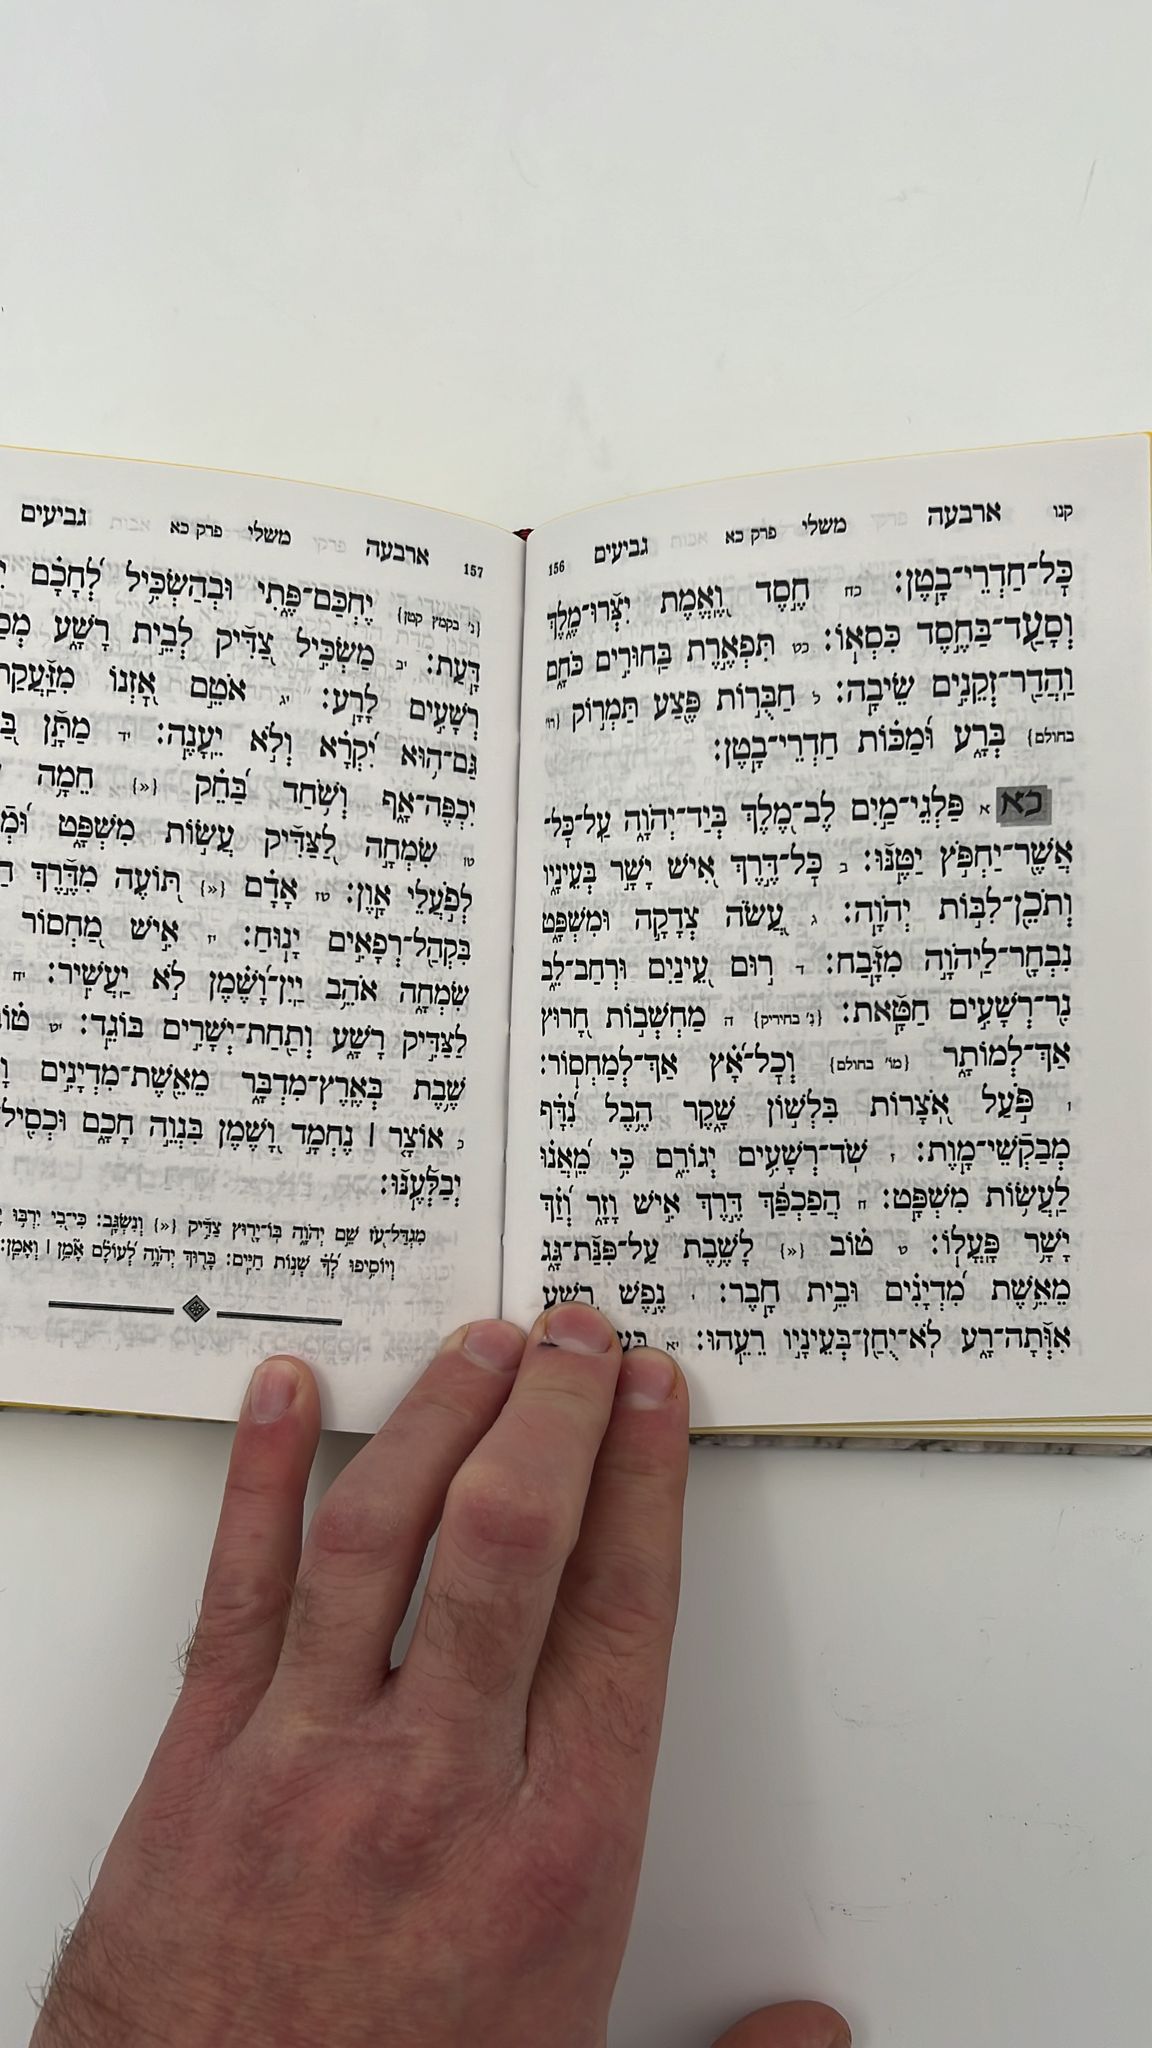 קנו ארבעה משלי פרק כא גביעים 156
כָּל־חַדְרֵי־בָֽטֶן׃ כח חֶ֣סֶד וֶ֭אֱמֶת יִצְּרוּ־מֶ֑לֶךְ
וְסָעַ֖ד בַּחֶ֣סֶד כִּסְאֽוֹ׃ כט תִּפְאֶ֣רֶת בַּחוּרִ֣ים כֹּחָ֑ם
וַהֲדַ֖ר זְקֵנִ֣ים שֵׂיבָֽה׃ ל חַבֻּר֣וֹת פֶּ֭צַע תַּמְר֣וֹק
בחולם} בְּרָ֑ע וּ֝מַכּ֗וֹת חַדְרֵי־בָֽטֶן׃
כא א פַּלְגֵי־מַ֣יִם לֶב־מֶ֭לֶךְ בְּיַד־יְהֹוָ֑ה עַֽל־כׇּל־
אֲשֶׁ֖ר יַחְפֹּ֣ץ יַטֶּֽנּוּ׃ ב כׇּֽל־דֶּרֶךְ־אִ֭ישׁ יָשָׁ֣ר בְּעֵינָ֑יו
וְתֹכֵ֖ן לִבּ֣וֹת יְהֹוָֽה׃ ג עֲ֭שֹׂה צְדָקָ֣ה וּמִשְׁפָּ֑ט
נִבְחָ֖ר לַיהֹוָ֣ה מִזָּֽבַח׃ ד ר֣וּם עֵ֭ינַיִם וּרְחַב־לֵ֑ב
נִ֖ר רְשָׁעִ֣ים חַטָּֽאת׃ {נ׳ בחיריק} ה מַחְשְׁב֣וֹת חָ֭רוּץ
אַךְ־לְמוֹתָ֑ר {מו׳ בחולם} וְכׇל־אָ֝֗ץ אַךְ־לְמַחְסֽוֹר׃
ו פֹּ֣עַל א֭וֹצָרוֹת בִּלְשׁ֣וֹן שָׁ֑קֶר הֶ֥בֶל נִ֝דָּ֗ף
מְבַקְשֵׁי־מָֽוֶת׃ ז שֹׁד־רְשָׁעִ֥ים יְגוֹרֵ֑ם כִּ֥י מֵ֝אֲנ֗וּ
לַעֲשׂ֥וֹת מִשְׁפָּֽט׃ ח הֲפַכְפַּ֬ךְ דֶּ֣רֶךְ אִ֣ישׁ וָזָ֑ר וְ֝זַ֗ךְ
יָשָׁ֥ר פׇּעֳלֽוֹ׃ ט ט֗וֹב {«} לָשֶׁ֥בֶת עַל־פִּנַּת־גָּ֑ג
מֵאֵ֥שֶׁת מִ֝דְיָנִ֗ים וּבֵ֥ית חָֽבֶר׃ י נֶ֣פֶשׁ רָ֭שָׁע
אִוְּתָה־רָ֑ע לֹא־יֻחַ֖ן בְּעֵינָ֣יו רֵעֵֽהוּ׃ יא
ארבעה משלי פרק כא גביעים 157
{נ׳ בקמץ קטן} יֶחְכַּם־פֶּ֑תִי וּבְהַשְׂכִּ֥יל לְ֝חָכָ֗ם
דָּֽעַת׃ יב מַשְׂכִּ֣יל צַ֭דִּיק לְבֵ֣ית רָשָׁ֑ע
רְשָׁעִ֣ים לָרָֽע׃ יג אֹטֵ֣ם אׇ֭זְנוֹ מִזַּעֲקַת
גַּם־ה֥וּא יִ֝קְרָ֗א וְלֹ֣א יֵעָנֶֽה׃ יד מַתָּ֣ן
יִכְפֶּה־אָ֑ף וְשֹׁ֥חַד בַּ֝חֵ֗ק {«} חֵמָ֥ה
טו שִׂמְחָ֣ה לַ֭צַּדִּיק עֲשׂ֣וֹת מִשְׁפָּ֑ט
לְפֹ֣עֲלֵי אָֽוֶן׃ טז אָדָ֗ם {«} תּ֭וֹעֶה מִדֶּ֣רֶךְ
בִּקְהַ֖ל רְפָאִ֣ים יָנֽוּחַ׃ יז אִ֣ישׁ מַ֭חְסוֹר
שִׂמְחָ֑ה אֹהֵ֥ב יַֽיִן־וָ֝שֶׁ֗מֶן לֹ֣א יַעֲשִֽׁיר׃ יח
לַצַּדִּ֣יק רָשָׁ֑ע וְתַ֖חַת יְשָׁרִ֣ים בּוֹגֵֽד׃ יט ט֗וֹב
שֶׁ֥בֶת בְּאֶֽרֶץ־מִדְבָּ֑ר מֵאֵ֖שֶׁת מִדְיָנִ֣ים
כ אוֹצָ֤ר ׀ נֶחְמָ֣ד וָ֭שֶׁמֶן בִּנְוֵ֣ה חָכָ֑ם וּכְסִ֖יל
יְבַלְּעֶֽנּוּ׃
מִגְדַּל־עֹ֭ז שֵׁ֣ם יְהֹוָ֑ה בּֽוֹ־יָר֖וּץ צַדִּ֣יק {«} וְנִשְׂגָּֽב׃ כִּי־בִ֭י יִרְבּ֣וּ
וְיוֹסִ֥יפוּ לְּ֝ךָ֗ שְׁנ֣וֹת חַיִּֽים׃ בָּר֖וּךְ יְהֹוָ֥ה לְ֝עוֹלָ֗ם אָ֘מֵ֥ן ׀ וְאָמֵֽן׃